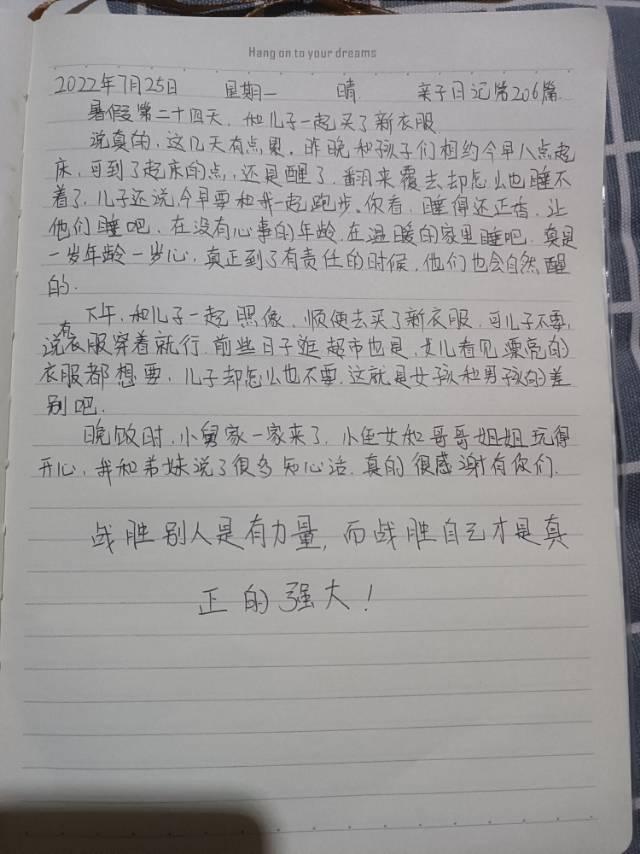 Hang on to your dreams
2022年7月25日 星期一 晴 亲子日记第206篇
暑假第二十四天,和儿子一起买了新衣服
说真的,这几天有点累,昨晚和孩子们相约今早八点起
床,可到了起床的点,还是醒了,翻来覆去却怎么也睡不
着了,儿子还说今早要和我一起跑步,你看,睡得还正香,让
他们睡吧,在没有心事的年龄,在温暖的家里睡吧,真是
一岁年龄一岁心,真正到了有责任的时候,他们也会自然醒
的.
下午,和儿子一起照像,顺便去买了新衣服,可儿子不要,
说有衣服穿着就行,前些日子逛超市也是,女儿看见漂亮的
衣服都想要,儿子却怎么也不要,这就是女孩和男孩的差
别吧.
晚饭时,小舅家一家来了,小侄女和哥哥姐姐玩得
开心,我和弟妹说了很多知心话,真的很感谢有你们.
战胜别人是有力量,而战胜自己才是真
正的强大!